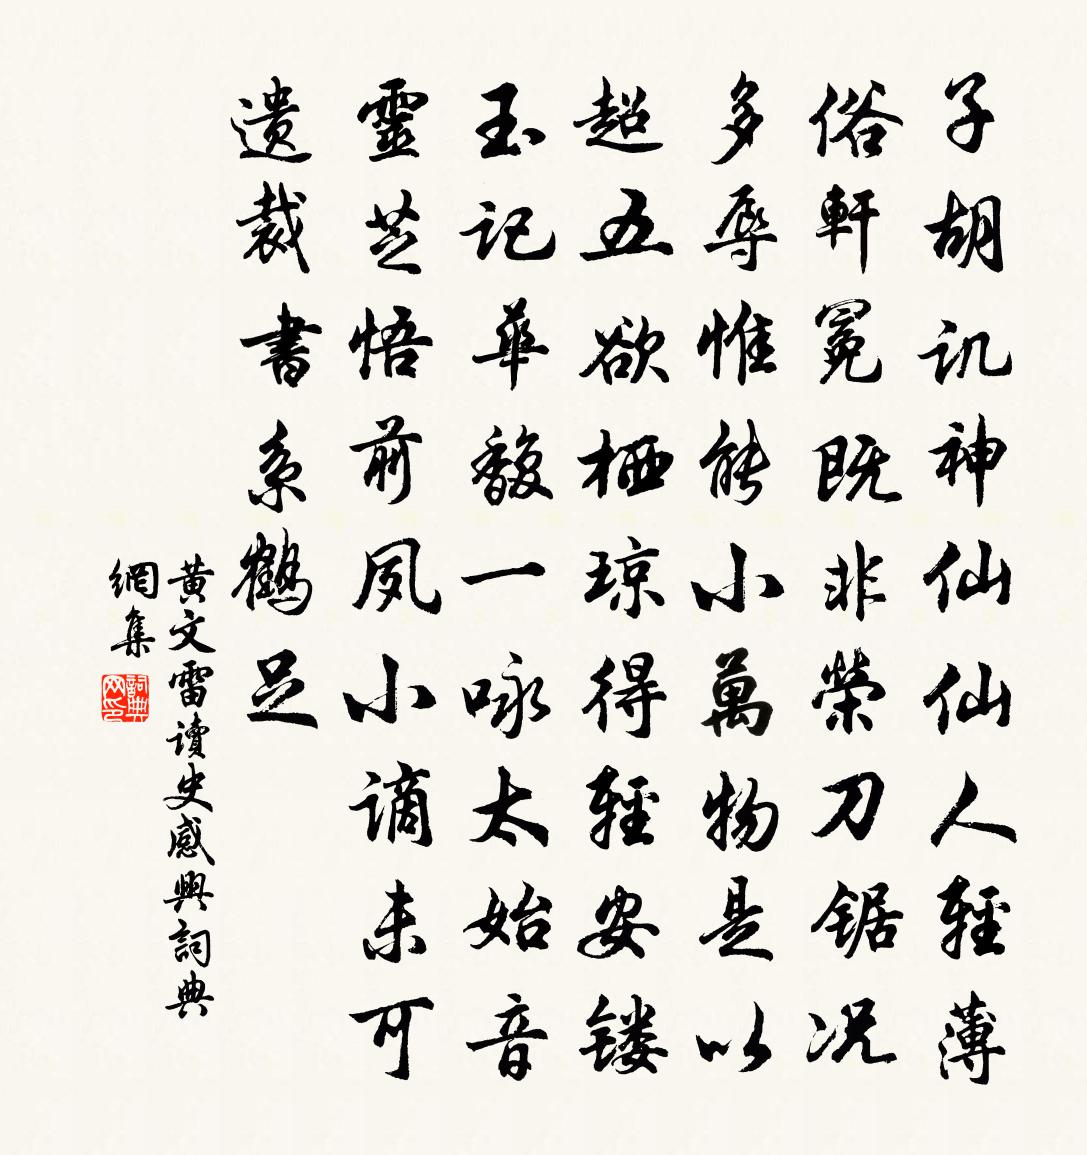 子胡讥神仙仙人輕薄
俗軒冕既非榮刀锯况
多辱惟能小萬物是以
超五欲栖琼得輕安镂
玉记華馥一咏太始音
靈芝悟前夙小谪未可
遗裁書系鶴足
黄文雷读史感興詞典
網集
詞典网